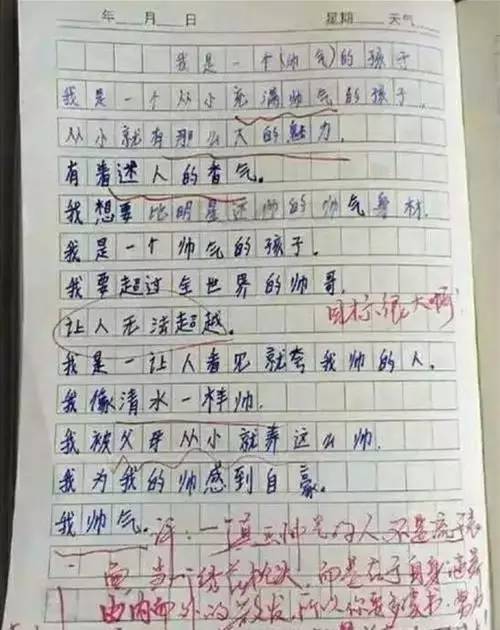 年 月 日 星期 天气
我是一个(帅气)的孩子
我是一个从小充满帅气的孩子.
从小就有那么大的魅力.
有着迷人的香气。
我想要比明星还帅的帅气身材.
我是一个帅气的孩子.
我要超过全世界的帅哥.
让人无法超越。
目标很大啊
我是一让人看见就夸我帅的人.
我像清水一样帅.
我被父母从小就养这么帅.
我为我的帅感到自豪。
我帅气。
评:一 真正帅气的人不是流于表
面 当一绣花枕头,而是在于自身
由内而外的 所以你要多读书,努力